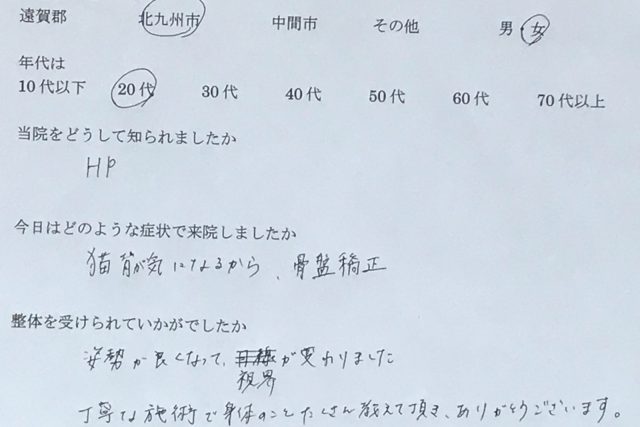 遠賀郡 北九州市 中間市 その他 男 女
年代は
10代以下 20代 30代 40代 50代 60代 70代以上
当院をどうして知られましたか
HP
今日はどのような症状で来院しましたか
猫背が気になるから、骨盤矯正
整体を受けられていかがでしたか
姿勢が良くなって、が変わりました
視界
丁寧な施術で身体のことたくさん教えて頂き、ありがとうございます。